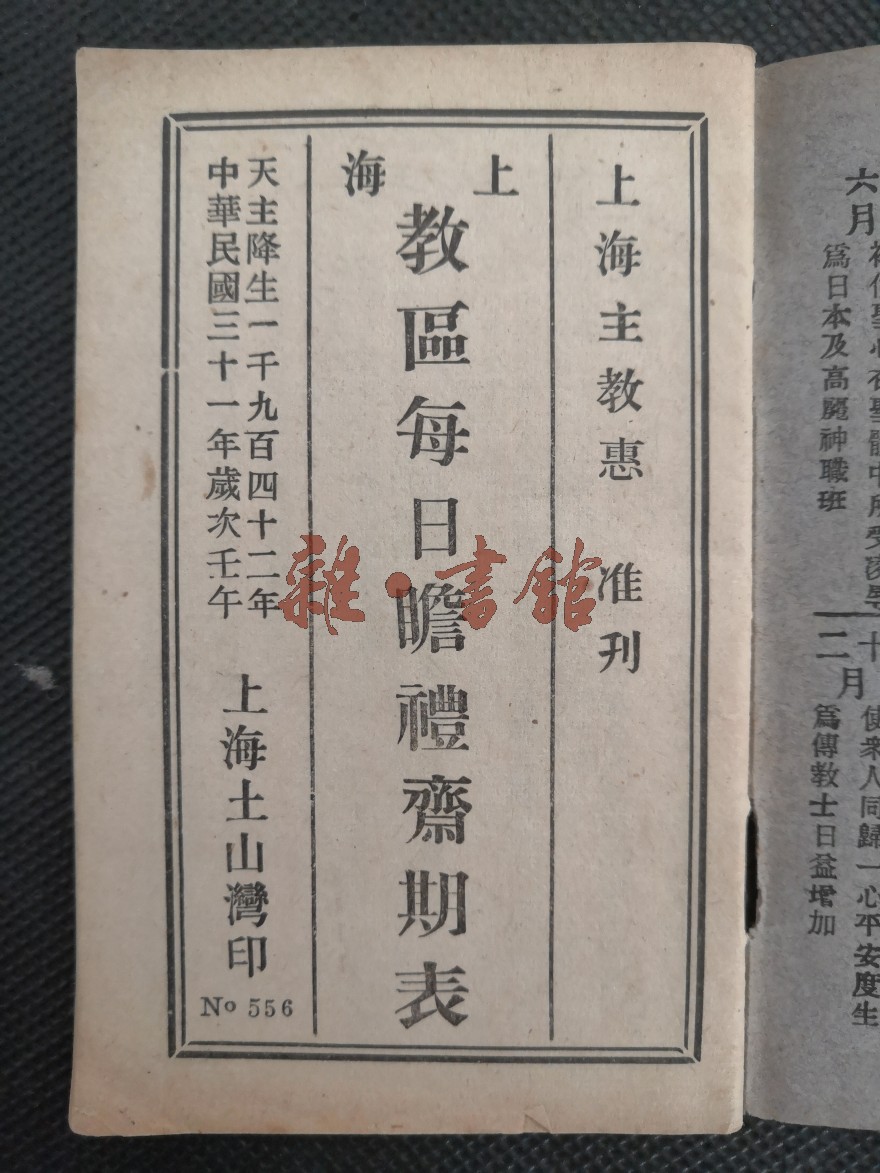 上海主教惠 准刊
上海
教區每日瞻禮齋期表
天主降生一千九百四十二年
中華民國三十一年歲次壬午
上海土山灣印
No 556
雜·書館
六月
爲日本及高麗神職班
十二月
使衆人同歸一心平安度生
爲傳教士日益增加